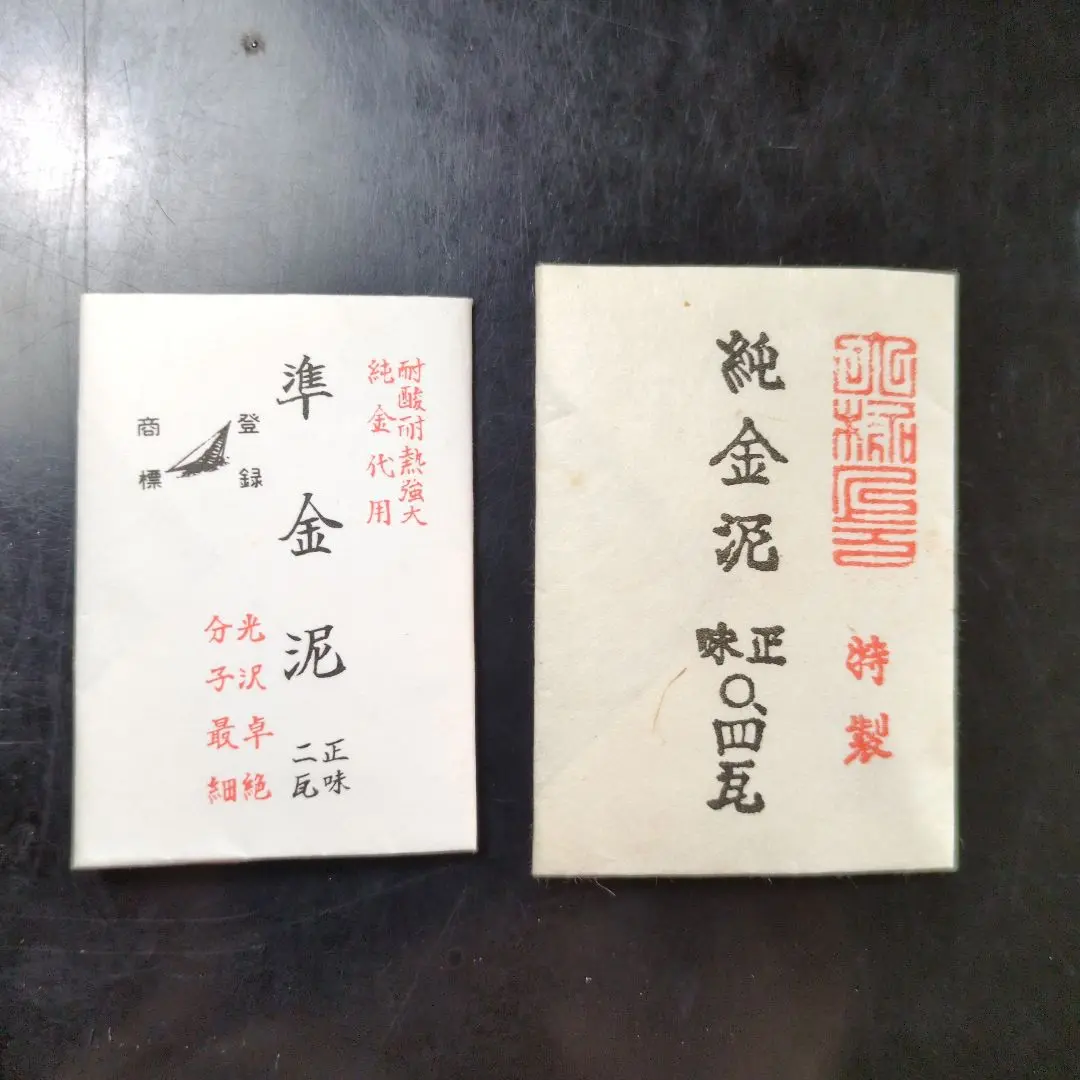 耐酸耐熱強大
純金代用
準金泥
正味
二瓦
登録
商標
光沢卓絶
分子最細
特製
純金泥
正味
〇、四瓦